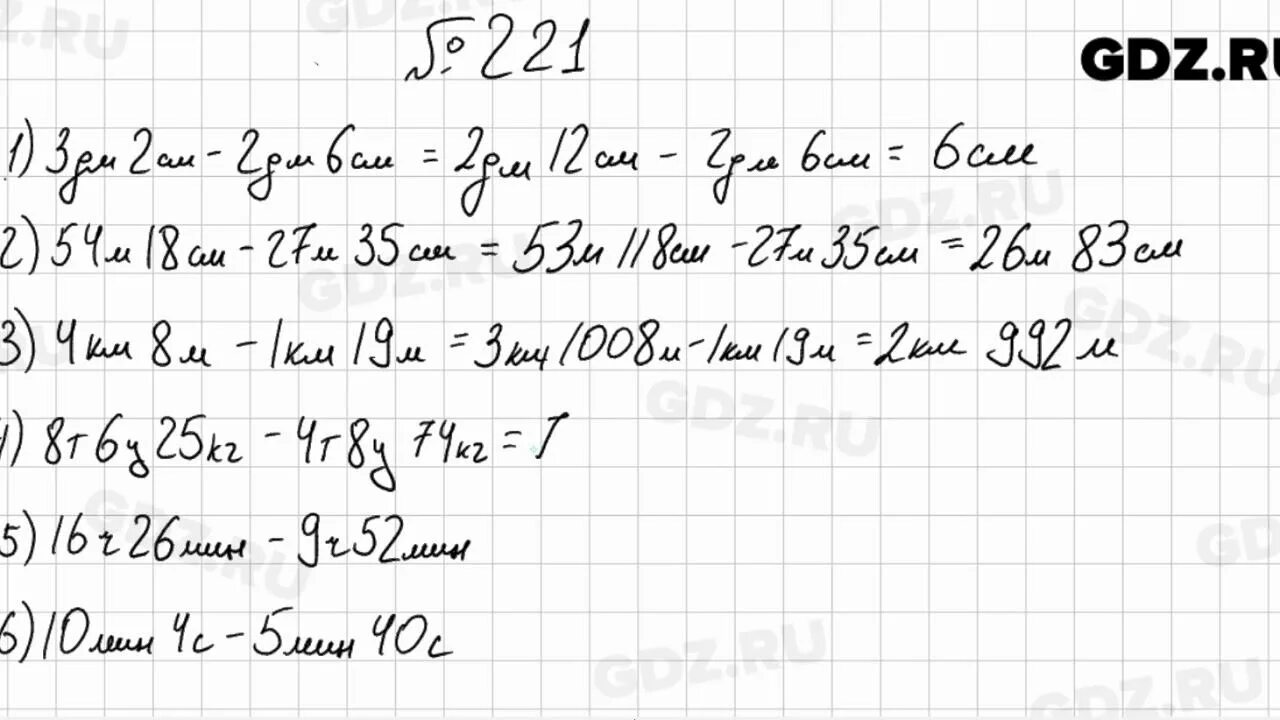 № 221
GDZ.RU
1) 3дм 2см - 2дм 6см = 2дм 12см - 2дм 6см = 6см
2) 54м 18см - 27м 35см = 53м 118см - 27м 35см = 26м 83см
3) 4км 8м - 1км 19м = 3км 1008м - 1км 19м = 2км 992м
4) 8т 6ц 25кг - 4т 8ц 74кг =
5) 16ч 26мин - 9ч 52мин
6) 10мин 4с - 5мин 40с